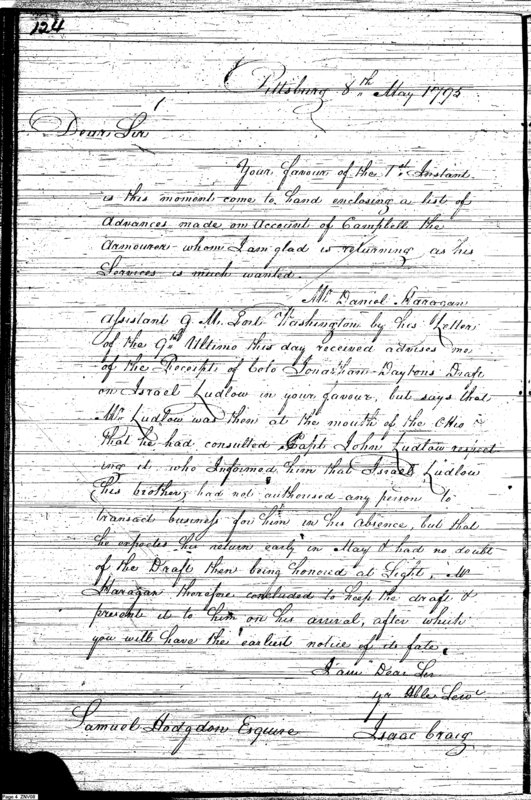 124
Pittsburg 8th May 1795
Dear Sir
Your favour of the 1st Instant
is this moment come to hand enclosing a list of
Advances made on Account of Campbell the
Armourer whom I am glad is returning as his
Services is much wanted.
Mr Daniel Haragan
Assistant Q. M. Fort Washington by his Letter
of the 9th Ultimo this day received advises me
of the Receipt of Colo Jonathan Daytons Draft
on Israel Ludlow in your favour, but says that
Mr Ludlow was then at the mouth of the Ohio
that he had consulted Capt John Ludlow respect
ing it who Informed him that Israel Ludlow
his brother, had not authorised any person to
transact business for him in his absence, but that
he expected his return early in May & had no doubt
of the Draft then being honored at Sight, Mr
Haragan therefore concluded to keep the draft &
present it to him on his arrival, after which
you will have the earliest notice of its fate.
I am Dear Sir
yr Hble Serv
Samuel Hodgdon Esquire
Isaac Craig
Page 4 ZNV08